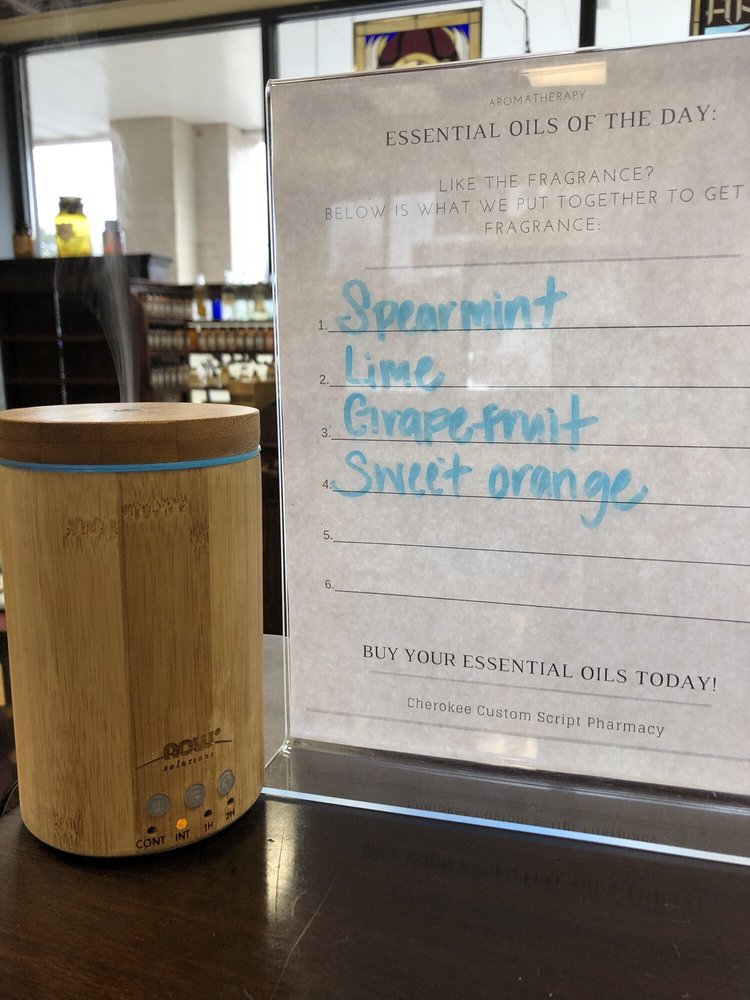 AROMATHERAPY
ESSENTIAL OILS OF THE DAY:
LIKE THE FRAGRANCE?
BELOW IS WHAT WE PUT TOGETHER TO GET
FRAGRANCE:
1. Spearmint
2. Lime
3. Grapefruit
4. Sweet orange
5.
6.
BUY YOUR ESSENTIAL OILS TODAY!
Cherokee Custom Script Pharmacy
NOW
solutions
CONT INT 1H 2H